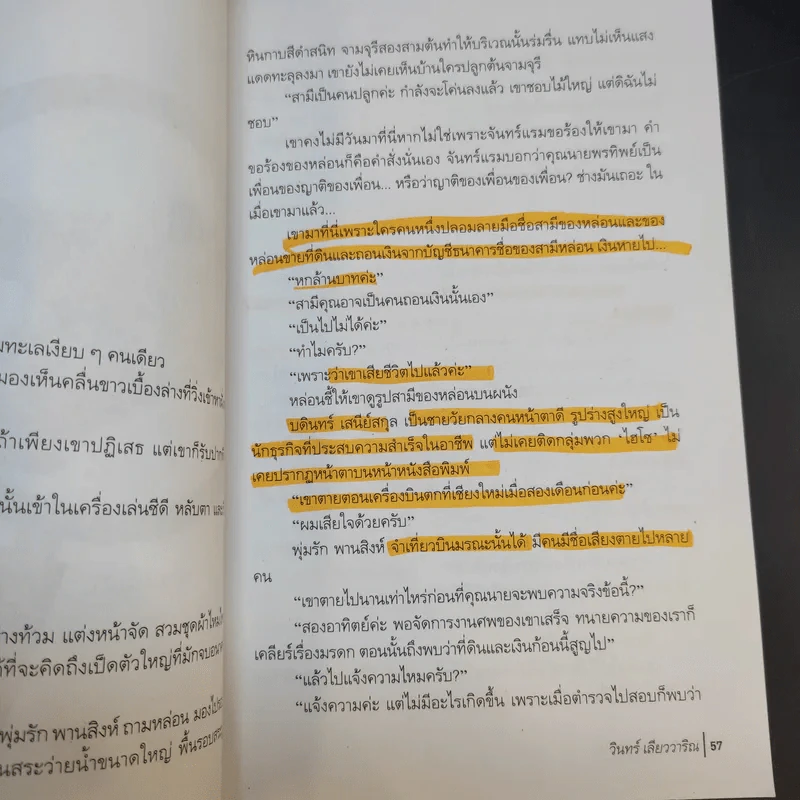 มทะเลเงียบ ๆ คนเดียว
มองเห็นคลื่นขาวเบื้องล่างที่วิ่งเข้าหาฝั่ง
ถ้าเพียงเขาปฏิเสธ แต่เขาก็รับปาก
นั้นเข้าในเครื่องเล่นซีดี หลับตา และ
างท้วม แต่งหน้าจัด สวมชุดผ้าไหม
ที่จะคิดถึงเป็ดตัวใหญ่ที่มักจบ
พุ่มรัก พานสิงห์ ถามหล่อน มอง
นสระว่ายน้ำขนาดใหญ่ พื้นรอบสระ
หินกาบสีดำสนิท จามจุรีสองสามต้นทำให้บริเวณนั้นร่มรื่น แทบไม่เห็นแสง
แดดทะลุลงมา เขายังไม่เคยเห็นบ้านใครปลูกต้นจามจุรี
“สามีเป็นคนปลูกค่ะ กำลังจะโค่นลงแล้ว เขาชอบไม้ใหญ่ แต่ดิฉันไม่
ชอบ”
เขาคงไม่มีวันมาที่นี่หากไม่ใช่เพราะจันทร์แรมขอร้องให้เขามา คำ
ขอร้องของหล่อนก็คือคำสั่งนั่นเอง จันทร์แรมบอกว่าคุณนายพรทิพย์เป็น
เพื่อนของญาติของเพื่อน... หรือว่าญาติของเพื่อนของเพื่อน? ช่างมันเถอะ ใน
เมื่อเขามาแล้ว...
เขามาที่นี่เพราะใครคนหนึ่งปลอมลายมือชื่อสามีของหล่อนและของ
หล่อนขายที่ดินและถอนเงินจากบัญชีธนาคารชื่อของสามีหล่อน เงินหายไป...
“หกล้านบาทค่ะ”
“สามีคุณอาจเป็นคนถอนเงินนั้นเอง”
“เป็นไปไม่ได้ค่ะ”
“ทำไมครับ?”
“เพราะว่าเขาเสียชีวิตไปแล้วค่ะ”
หล่อนชี้ให้เขาดูรูปสามีของหล่อนบนผนัง
บดินทร์ เสนีย์สกุล เป็นชายวัยกลางคนหน้าตาดี รูปร่างสูงใหญ่ เป็น
นักธุรกิจที่ประสบความสำเร็จในอาชีพ แต่ไม่เคยติดกลุ่มพวก ‘ไฮโซ’ ไม่
เคยปรากฏหน้าตาบนหน้าหนังสือพิมพ์
“เขาตายตอนเครื่องบินตกที่เชียงใหม่เมื่อสองเดือนก่อนค่ะ”
“ผมเสียใจด้วยครับ”
พุ่มรัก พานสิงห์ จำเที่ยวบินมรณะนั้นได้ มีคนมีชื่อเสียงตายไปหลาย
คน
“เขาตายไปนานเท่าไหร่ก่อนที่คุณนายจะพบความจริงข้อนี้?”
“สองอาทิตย์ค่ะ พอจัดการงานศพของเขาเสร็จ ทนายความของเราก็
เคลียร์เรื่องมรดก ตอนนั้นถึงพบว่าที่ดินและเงินก้อนนี้สูญไป”
“แล้วไปแจ้งความไหมครับ?”
“แจ้งความค่ะ แต่ไม่มีอะไรเกิดขึ้น เพราะเมื่อตำรวจไปสอบก็พบว่า
วินทร์ เลียววาริณ 57